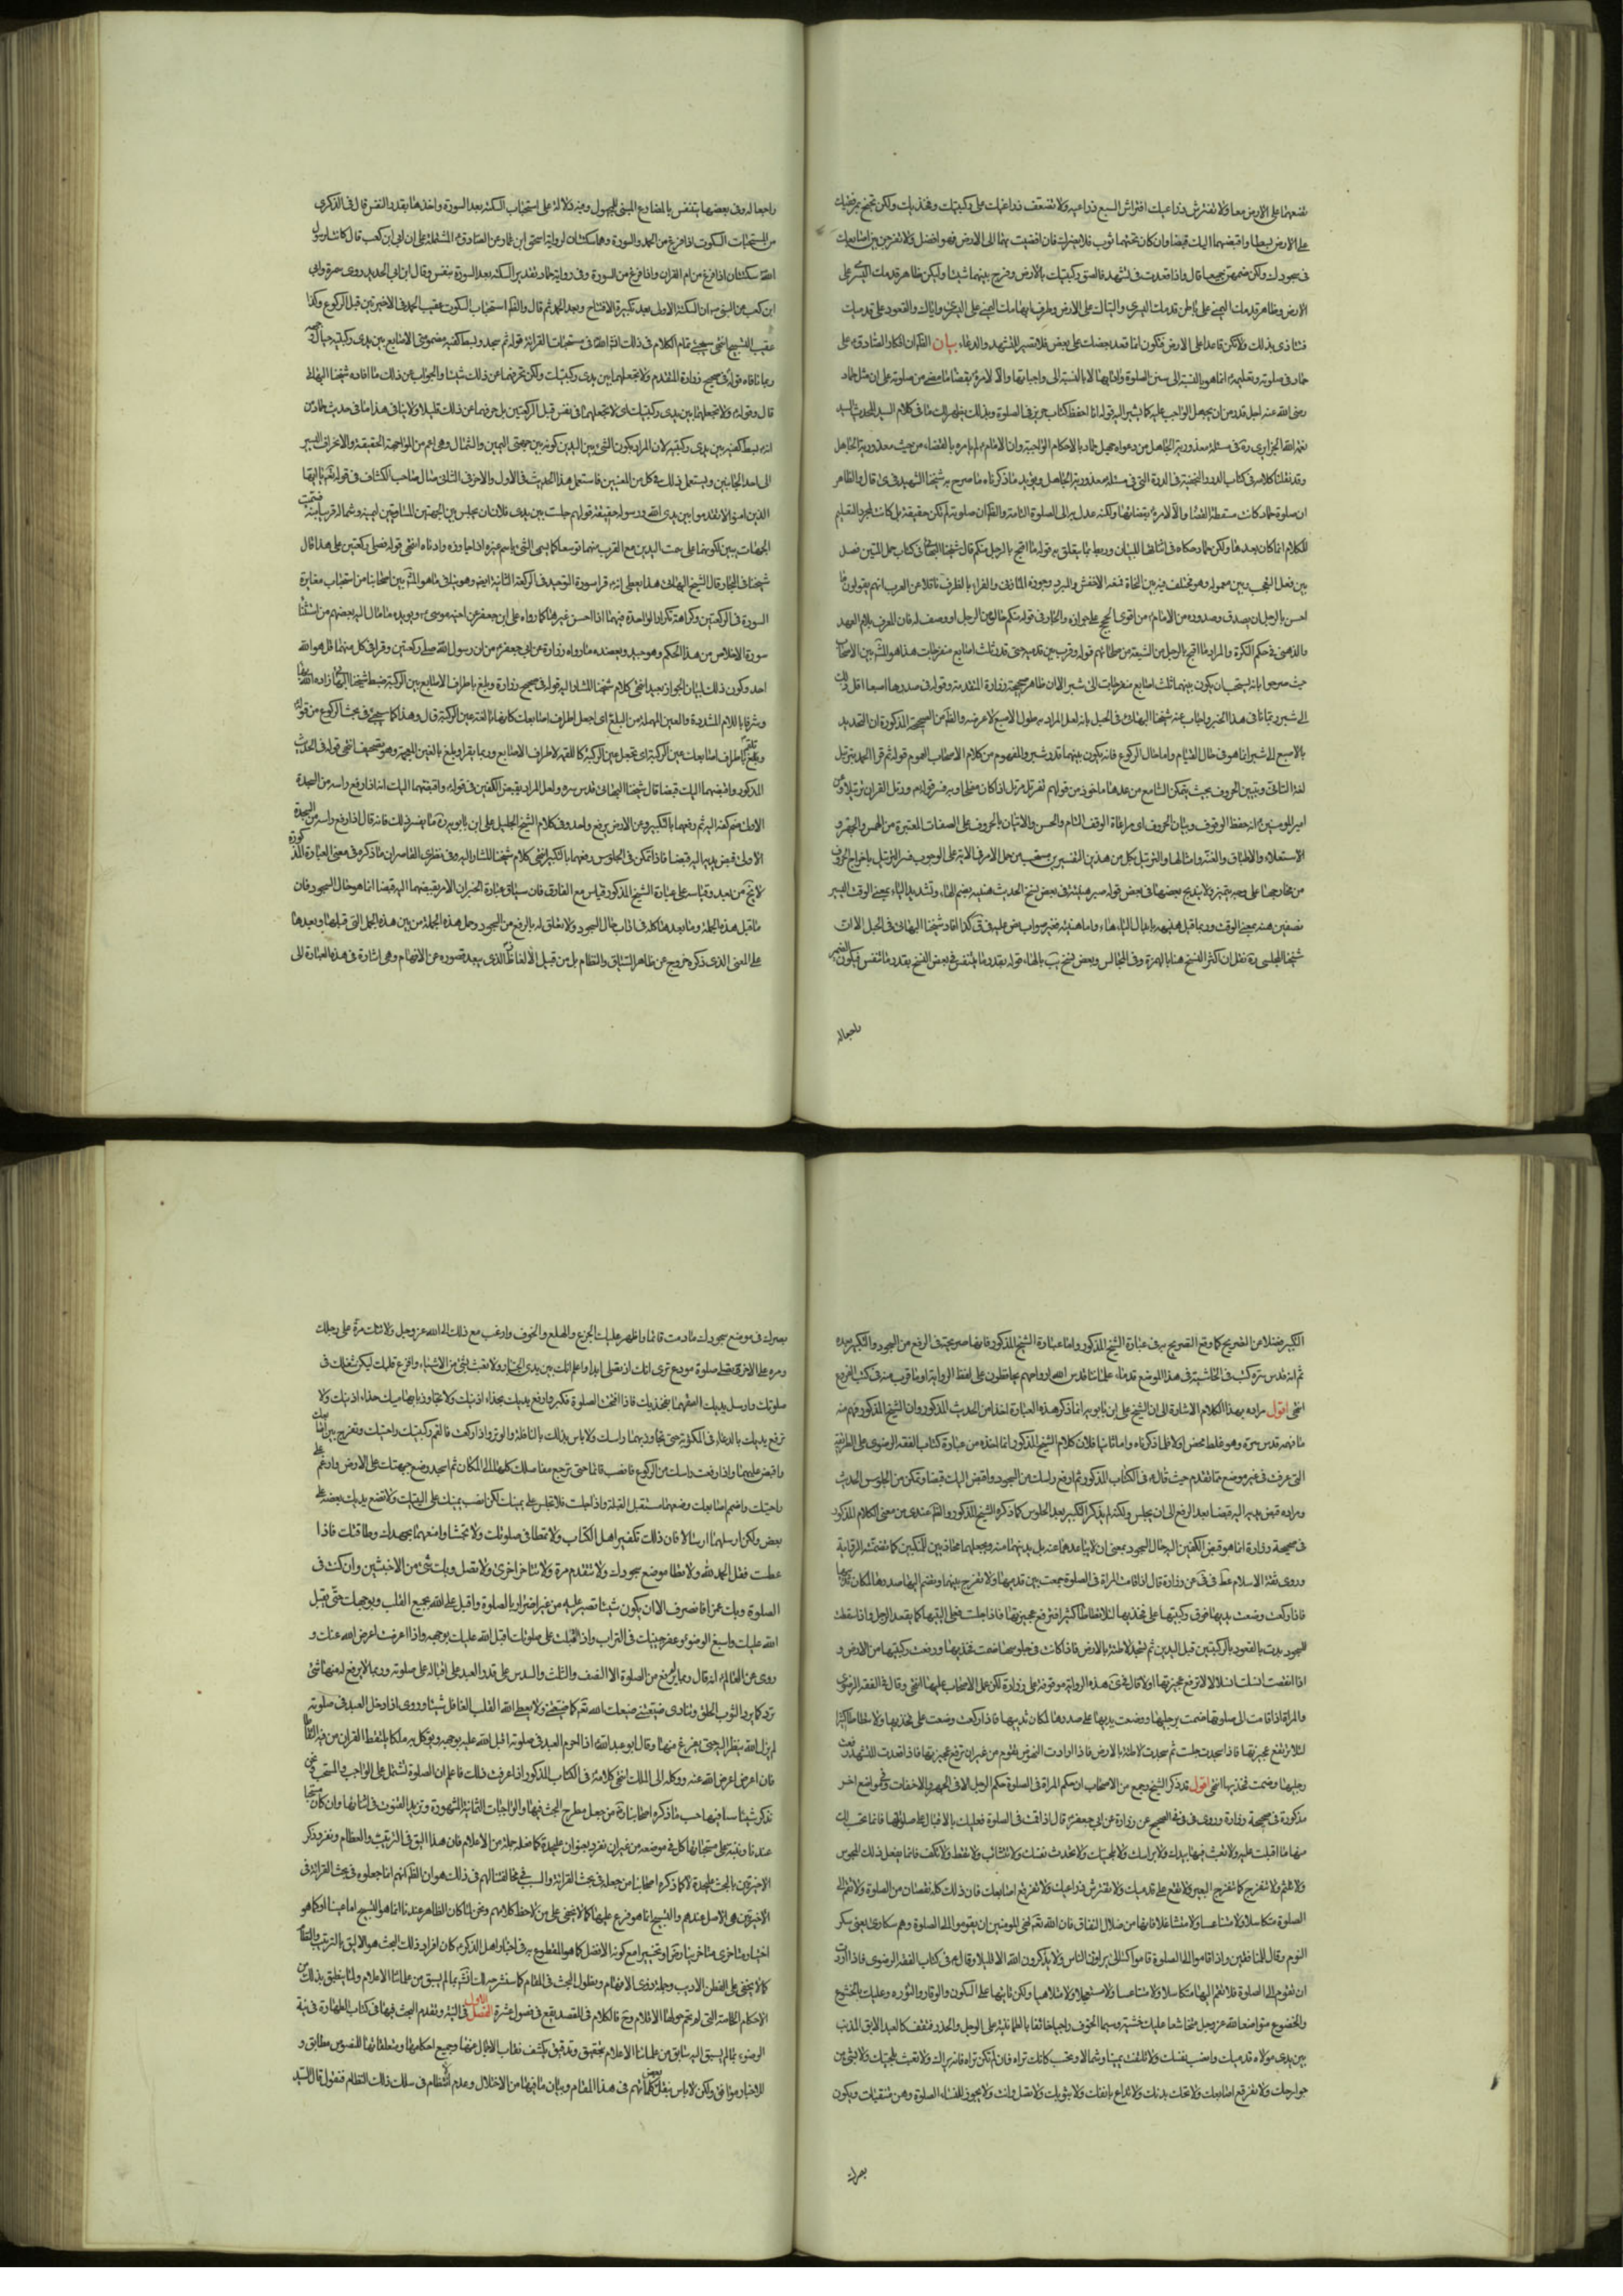 تضعهما على الارض معا ولا تفترش ذراعيك افتراش السبع ذراعيه ولا تضعف ذراعيك على ركبتيك وفخذيك ولكن تجنح بمرفقيك
على الارض ابسطهما واقبضهما اليك قبضا وان كان تحتهما ثوب فلا يضرك فان افضيت بهما الى الارض فهو افضل ولا تفرجن بين اصابعك
في سجودك ولكن ضمهن جميعا قال واذا قعدت في تشهدك فالصق ركبتيك بالارض وفرج بينهما شيئا وليكن ظاهر قدمك اليسرى على
الارض وظاهر قدمك اليمنى على باطن قدمك اليسرى والياك على الارض وطرف ابهامك اليمنى على اليسرى واياك والقعود على قدميك
فتتاذى بذلك ولا تكن قاعدا على الارض فتكون انما قعد بعضك على بعض فلا تصبر للتشهد والدعاء بيان الظ ان انكار الصادق ع على
حماد في صلوته وتعليمه انما هو بالنسبة الى سنن الصلوة وادابها لا بالنسبة الى واجباتها والا لامره بقضاء ما مضى من صلوته على ان مثل حماد
رضي الله عنه اجل قدر من ان يجهل الواجب عليه كما يشير اليه قوله انا احفظ كتاب حريز في الصلوة وبذلك يظهر لك ما في كلام السيد المحدث السيد
نعمة الله الجزايري ره في مسئلة معذورية الجاهل من دعواه جهل حماد بالاحكام الواجبة وان الامام لم يامره بالقضاء من حيث معذورية الجاهل
وقد نقلنا كلامه في كتاب الدرر النجفية في الدرة التي في مسئلة معذورية الجاهل ويؤيد ما ذكرناه ما صرح به شيخنا الشهيد في قال والظاهر
ان صلوة حماد كانت مسقطة للقضاء والا لامره بقضائها ولكنه عدل به الى الصلوة التامة والظ ان صلوته لم تكن حقيقة بل كانت لمجرد التعليم
للكلام انما كان بعدها ولكن حماد حكاه في اثنائها للبيان وربط ما يتعلق به قوله ما اقبح بالرجل منكم قال شيخنا البهائي في كتاب حبل المتين فصل
بين فعل التعجب وبين معموله وهو مختلف فيه بين النحاة فمنعه الاخفش والمبرد وجوزه المازني والفراء بالظرف ناقلا عن العرب انهم يقولون ما
احسن بالرجل ان يصدق وصدوره من الامام من اقوى الحجج على جوازه والجار في قوله منكم حال من الرجل او وصف له فان المعرف بلام العهد
والذهني في حكم النكرة والمراد ما اقبح بالرجل من الشيعة من صلحائهم قوله وقرب بين قدميه حتى قدر ثلث اصابع منفرجات هذا هو المش بين الاصحاب
حيث صرحوا بانه يستحب ان يكون بينهما ثلث اصابع منفرجات الى شبر الا ان ظاهر صحيحة زرارة المتقدمة وقوله في صدرها اصبعا اقل ذلك
الى شبر ربما نافى هذا الخبر واجاب عنه شيخنا البهائي في الحبل بانه لعل المراد به طول الاصبع لا عرضه والظ من الصحيحة المذكورة ان التحديد
بالاصبع الى شبر انما هو في حال القيام واما حال الركوع فانه يكون بينهما قدر شبر والمفهوم من كلام الاصحاب العموم قوله ثم قرا الحمد بترتيل
لغة التاني وتبيين الحروف بحيث يتمكن السامع من عدها ماخوذ من قولهم ثغر رتل مرتل اذا كان مفلجا وبه فسر قوله تع ورتل القران ترتيلا وعن
امير المومنين ع انه حفظ الوقوف وبيان الحروف اى مراعاة الوقف التام والحسن والاتيان بالحروف على الصفات المعتبرة من الهمس والجهر و
الاستعلاء والاطباق والغنة وامثالها والترتيل بكل من هذين التفسيرين مستحب من حمل الامر في الاية على الوجوب فسر الترتيل باخراج الحروف
من مخارجها على وجه يتميز ولا يندمج بعضها في بعض قوله صبر هنيئة في بعض نسخ الحديث هنية بضم الهاء وتشديد الياء بمعنى الوقت اليسير
تصغير هنة بمعنى الوقت وربما قيل هنيهة بابدال الياء هاء واما هنيئة فغير صواب نص عليه في ق كذا افاد شيخنا البهائي في الحبل الا ان
شيخنا المجلسي ره نقل ان اكثر النسخ هنا بالهمزة وفي المجالس وبعض نسخ يب بالهاء قوله بقدر ما يتنفس في بعض النسخ بقدر ما تنفس فيكون الضمير
راجعا له
راجعا له وفي بعضها يتنفس بالمضارع المبني للمجهول وفيه دلالة على استحباب السكتة بعد السورة واخذها بقدر النفس قال في الذكرى
من المستحبات السكوت اذا فرغ من الحمد والسورة وهما سكتتان لرواية اسحق ابن عمار عن الصادق ع المشتملة على ان ابي ابن كعب قال كانت لرسول
الله ص سكتتان اذا فرغ من ام القران واذا فرغ من السورة وفي رواية حماد تقدير السكتة بعد السورة بنفس وقال ابن ابي الحديد روى سمرة وابي
ابن كعب عن النبي ص ان السكتة الاولى بعد تكبيرة الافتتاح وبعد الحمد ثم قال والظ استحباب السكوت عقيب الحمد في الاخيرتين قبل الركوع وكذا
عقيب التسبيح انتهى سيجئ تمام الكلام في ذلك انش الله في مستحبات القراءة قوله ثم سجد وبسط كفيه مضمومتي الاصابع بين يدى ركبتيه حيال وجهه
ربما نافاه قوله في صحيح زرارة المتقدم ولا تجعلهما بين يدى ركبتيك ولكن تحرفهما عن ذلك شيئا والجواب عن ذلك ما افاده شيخنا البهائي
قال وقوله ع ولا تجعلهما بين يدى ركبتيك اى لا تجعلهما في نفس قبل الركبتين بل احرفهما عن ذلك قليلا ولا ينافي هذا ما في حديث حماد من
انه بسط كفيه بين يدى ركبتيه لان المراد بكون الشئ بين اليدين كونه بين جهتي اليمين والشمال وهى اعم من المواجهة الحقيقية والانحراف اليسير
الى احد الجانبين ويستعمل ذلك في كل من المعنيين فاستعمل هذا الحديث في الاول والاخر في الثاني قال صاحب الكشاف في قوله تع يا ايها
الذين امنوا لا تقدموا بين يدى الله ورسوله حقيقة قولهم جلست بين يدى فلان ان يجلس بين الجهتين المسامتتين ليمينه وشماله قريبا منه فسميت
الجهات يدين لكونهما على سمت اليدين مع القرب منهما توسعا كما يسمى الشئ باسم غيره اذا جاوره وداناه انتهى قوله فصلى ركعتين على هذا قال
شيخنا في البحار وقال الشيخ البهائي هذا يعطي انه ع قرا سورة التوحيد في الركعة الثانية ايضا وهو ينافي ما هو المش بين اصحابنا من استحباب مغايرة
السورة في الركعتين وكراهة تكرار الواحدة فيهما اذا احسن غيرها كما رواه على ابن جعفر عن اخيه موسى ع ويؤيده ما مال اليه بعضهم من استثناء
سورة الاخلاص من هذا الحكم وهو جيد ويعضده ما رواه زرارة عن ابي جعفر ع من ان رسول الله صلى ركعتين وقرا في كل منهما قل هو الله
احد وكون ذلك لبيان الجواز بعيد انتهى كلام شيخنا المشار اليه قوله في صحيح زرارة وبلع باطراف الاصابع عين الركبة ضبطه شيخنا البهائي زاده الله بهاء
وشرفا باللام المشددة والعين المهملة من البلع اى اجعل اطراف اصابعك كانها بالعة عين الركبة قال وهذا كما سيجئ في بحث الركوع من قوله
وتلقم باطراف اصابعك عين الركبة اى تجعل عين الركبة كاللقمة لاطراف الاصابع وربما يقرا وبلغ بالغين المعجمة وهو تصحيف انتهى قوله في الحديث
المذكور واقبضهما اليك قبضا قال شيخنا البهائي قدس سره ولعل المراد بقبض الكفين في قوله ع واقبضهما اليك انه اذا رفع راسه من السجدة
الاولى ضم كفيه اليه ثم رفعهما بالتكبير وعن الارض برفع واحد وفي كلام الشيخ الجليل على ابن بابويه ره ما يفسر ذلك فانه قال اذا رفع راسه من السجدة
الاولى قبض يديه اليه قبضا فاذا تمكن في الجلوس رفعهما بالتكبير انتهى كلام شيخنا المشار اليه وفي نظرى القاصر ان ما ذكره في معنى العبارة المذكورة
لا يخ من بعد وقياسه على عبارة الشيخ المذكور قياس مع الفارق فان سياق عبارة الخبر ان الامر بقبضهما اليه قبضا انما هو حال السجود فان
ما قبل هذه الجملة وما بعدها كله في اداب حال السجود ولا تعلق له بالرفع من السجود وحمل هذه الجملة من بين هذه الجمل التي قبلها وبعدها
على المعنى الذى ذكره خروج عن ظاهر السياق والنظام بل من قبيل الالغاز الذى يبعد تصوره عن الافهام وهى اشارة في هذه العبارة الى
التكبير فضلا عن الصريح كما وقع التصريح به في عبارة الشيخ المذكور واما عبارة الشيخ المذكور فانها صريحة في الرفع من السجود والتكبير بعده
ثم انه قدس سره كتب في الحاشية في هذا الموضع قدماء علمائنا قدس الله ارواحهم يحافظون على لفظ الرواية او ما قرب منه في كتب الفروع
انتهى اقول مراده بهذا الكلام الاشارة الى ان الشيخ على ابن بابويه انما ذكر هذه العبارة اخذا من الحديث المذكور وان الشيخ المذكور فهم منه
ما فهمه قدس سره وهو غلط محض اولا فلما ذكرناه واما ثانيا فلان كلام الشيخ المذكور انما اخذه من عبارة كتاب الفقه الرضوى على الطريقة
التي عرفت في غير موضع مما تقدم حيث قال ع في الكتاب المذكور ثم ارفع راسك من السجود واقبض اليك قبضا وتمكن من الجلوس الحديث
ومراده قبض يديه اليه قبضا بعد الرفع الى ان يجلس ولكنه لم يذكر التكبير بعد الجلوس كما ذكره الشيخ المذكور والظ عندى من معنى الكلام المذكور
في صحيحة زرارة انما هو قبض الكفين اليه حال السجود بمعنى ان لا يباعدهما عنه بل يدنيهما منه ويجعلهما محاذيين للمنكبين كما تضمنته الرواية
وروى ثقة الاسلام عط في في عن زرارة قال اذا قامت المراة في الصلوة جمعت بين قدميها ولا تفرج بينهما وتضم اليها صدرها لمكان ثدييها
فاذا ركعت وضعت يديها فوق ركبتيها على فخذيها لئلا تطاطا كثيرا فترتفع عجيزتها فاذا جلست فعلى اليتيها كما يقعد الرجل واذا سقطت
للسجود بدت بالقعود بالركبتين قبل اليدين ثم تسجد لاطئة بالارض فاذا كانت في جلوسها ضمت فخذيها ورفعت ركبتيها من الارض و
اذا نهضت انسلت انسلالا لا ترفع عجيزتها اولا قال في الذكرى هذه الرواية موقوفة على زرارة لكن عمل الاصحاب عليها انتهى وقال في الفقه الرضوى
والمراة اذا قامت الى صلوتها ضمت برجليها ووضعت يديها على صدرها لمكان ثدييها فاذا ركعت وضعت على فخذيها ولا تطاطا كثيرا
لئلا ترتفع عجيزتها فاذا سجدت جلست ثم سجدت لاطئة بالارض فاذا ارادت النهوض تقوم من غير ان ترفع عجيزتها فاذا قعدت للتشهد رفعت
رجليها وضمت فخذيها انتهى اقول قد ذكر الشيخ وجمع من الاصحاب ان حكم المراة في الصلوة حكم الرجل الا في الجهر والاخفات وفي مواضع اخر
مذكورة في صحيحة زرارة وروى في في الصحيح عن زرارة عن ابي جعفر ع قال اذا قمت في الصلوة فعليك بالاقبال على صلوتك فانما يحسب لك
منها ما اقبلت عليه ولا تعبث فيها بيدك ولا براسك ولا بلحيتك ولا تحدث نفسك ولا تتثائب ولا تتمط ولا تكفر فانما يفعل ذلك المجوس
ولا تلثم ولا تتفرج كما تتفرج البعير ولا تقع على قدميك ولا تفترش ذراعيك ولا تفرقع اصابعك فان ذلك كله نقصان من الصلوة ولا تقم الى
الصلوة متكاسلا ولا متناعسا ولا متثاقلا فانها من خلال النفاق فان الله تع نهى المومنين ان يقوموا الى الصلوة وهم سكارى يعني سكر
النوم وقال للمنافقين واذا قاموا الى الصلوة قاموا كسالى يراؤن الناس ولا يذكرون الله الا قليلا وقال ع في كتاب الفقه الرضوى فاذا اردت
ان تقوم الى الصلوة فلا تقم اليها متكاسلا ولا متناعسا ولا مستعجلا ولا متلاهيا ولكن تاتيها على السكون والوقار والتؤدة وعليك بالخشوع
والخضوع متواضعا لله عز وجل متخاشعا عليك خشية وسيما الخوف راجيا خائفا بالطمانينة على الوجل والحذر فتقف كالعبد الابق المذنب
بين يدى مولاه قدميك وانصب نفسك ولا تلتفت يمينا وشمالا وتحسب كانك تراه فان لم تكن تراه فانه يراك ولا تعبث بلحيتك ولا بشئ من
جوارحك ولا تفرقع اصابعك ولا تحك بدنك ولا تولع بانفك ولا بثوبك ولا تصل وانت متلثم ولا يجوز للنساء الصلوة وهن متنقبات ويكون
بصرك
بصرك في موضع سجودك ما دمت قائما واظهر عليك الجزع والهلع والخوف وارغب مع ذلك الى الله عز وجل ولا تتك مرة على رجلك
ومرة على الاخرى تصلى صلوة مودع ترى انك لا تصلى ابدا واعلم انك بين يدى الجبار ولا تعبث بشئ من الاشياء وافرغ قلبك ليكن شغلك في
صلوتك وارسل يديك الصقهما بفخذيك فاذا افتتحت الصلوة فكبر وارفع يديك بحذاء اذنيك ولا تجاوز بابهاميك حذاء اذنيك ولا
ترفع يديك بالدعاء في المكتوبة حتى تجاوز بهما راسك ولا باس بذلك بالنافلة والوتر واذا ركعت فالقم ركبتيك راحتيك وتفرج بين اصابعك
واقبض عليهما واذا رفعت راسك من الركوع فانصب قائما حتى ترجع مفاصلك كلها الى المكان ثم اسجد وضع جبهتك على الارض وارغم على
راحتيك واضمم اصابعك وضعهما مستقبل القبلة واذا جلست فلا تجلس على يمينك لكن انصب يمينك على اليتيك ولا تضع يديك بعضه على
بعض ولكن ارسلهما ارسالا فان ذلك تكفير اهل الكتاب ولا تتمطا في صلوتك ولا تتجشا وامنعهما بجهدك وطاقتك فاذا
عطست فقل الحمد لله ولا تطا موضع سجودك ولا تتقدم مرة ولا تتاخر اخرى ولا تصل وبك شئ من الاخبثين وان كنت في
الصلوة وبك غمز فانصرف الا ان يكون شيئا تصبر عليه من غير اضرار بالصلوة واقبل على الله بجميع القلب وبوجهك حتى يقبل
الله عليك واسبغ الوضوء وعفر جبينك في التراب واذا اقبلت على صلوتك اقبل الله عليك بوجهه واذا اعرضت اعرض الله عنك و
روى عن العالم ع انه قال ربما لم يرفع من الصلوة الا النصف والثلث والسدس على قدر العبد على اقباله على صلوته وربما لا يرفع له منها شئ
ترد كما يرد الثوب الخلق وتنادى ضيعتني ضيعك الله تعم كما ضيعتني ولا يعطي الله القلب الغافل شيئا وروى اذا دخل العبد في صلوته
لم يزل الله ينظر اليه حتى يفرغ منها وقال ابو عبد الله ع اذا احرم العبد في صلوته اقبل الله عليه بوجهه ويؤكل به ملكا يلتقط القران من فيه التقاطا
فان اعرض اعرض الله عنه ووكله الى الملك انتهى كلامه ع في الكتاب المذكور اذا عرفت ذلك فاعلم ان الصلوة تشتمل على الواجب والمستحب نحن
نذكر شيئا فيها حسب ما ذكره اصحابنا ره من جعل مطرح البحث فيها والواجبات الثمانية المشهورة ونزيد القنوت في اثنائها وان كان مستحبا
عندنا وننبه على مستحباتها كل في موضعه من غير ان نفرد بعنوان على حدة كما فعله جملة من الاعلام فان هذا اليق في الترتيب والنظام ونفرد ذكر
الاخيرتين بالبحث على حدة لا كما ذكره اصحابنا من جعله في بحث القراءة والسبب في مخالفتنا لهم في ذلك هو ان الظ انهم انما جعلوه في بحث القراءة في
الاخيرتين هى الاصل عندهم والتسبيح انما هو فرع عليها كما لا يخفى على من لاحظ كلامهم ونحن لما كان الظاهر عندنا انما هو التسبيح اما عينا او كما هو
اختيار متاخرى متاخرينا رض او تخييرا مع كونه الافضل كما هو المقطوع به في اخبار اهل الذكر ع كان افراد ذلك البحث هو الاليق بالترتيب والنظام
كما لا يخفى على الفطن الاديب وجملة ذوى الافهام ونطول البحث في المقام كما ستشرحه لك انش تع بما لم يسبق من علمائنا الاعلام ولما يتعلق بذلك من
الاحكام الخاصة التي لم يحم حولها الاقلام وح فالكلام في المقصد يقع في فصول عشرة الفصل الاول في النية وتقدم البحث فيها في كتاب الطهارة في نية
الوضوء بما لم يسبق اليه سابق من علمائنا الاعلام بتحقيق وتدقيق يكشف نقاب الاجمال عنها وجميع احكامها ومتعلقاتها للنصوص مطابق و
للاخبار موافق ولكن لا باس بنقل بعض كلماتهم في هذا المقام وبيان ما فيها من الاختلال وعدم الانتظام في سلك ذلك النظام فنقول قال السيد